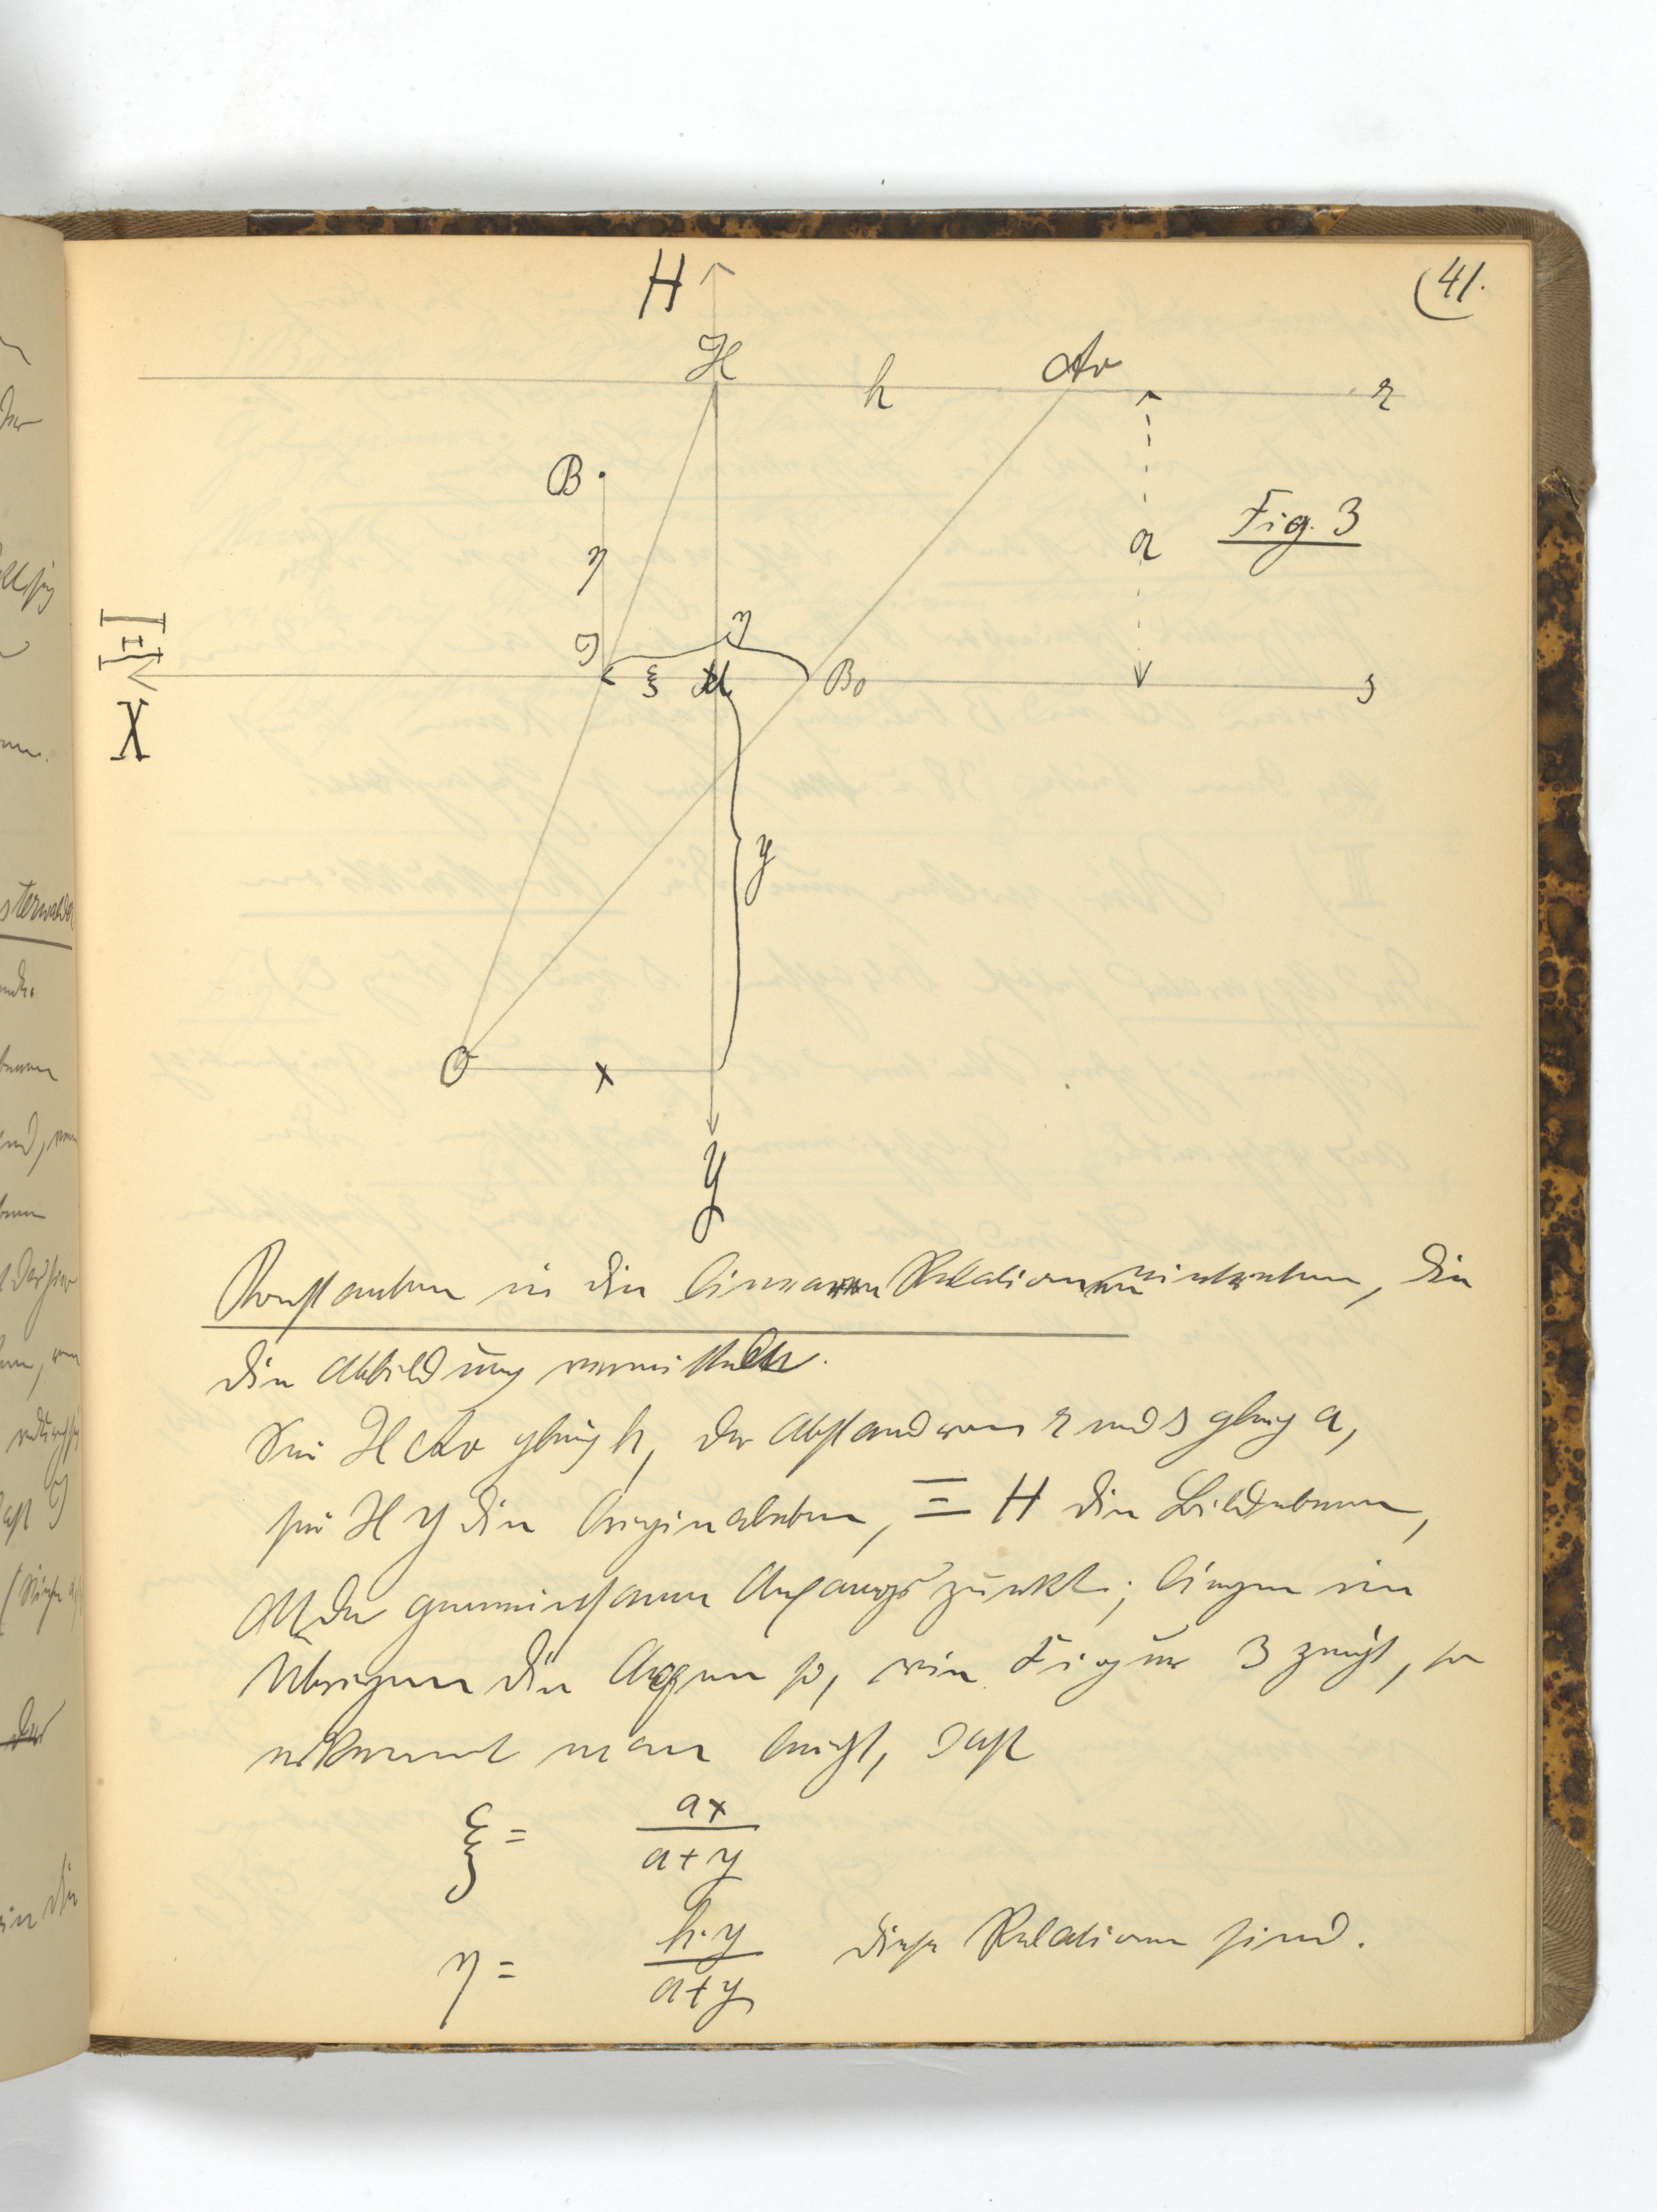 (41.
H
H
Av
h
r
B
η
a
Fig. 3
J
η
ξ
M
B₀
s
Ξ
X
y
O
x
Y
Konstanten in die linearen Relationen eintreten, die
die Abbildung vermitteln.
Sei H Av gleich h, der Abstand von r und s gleich a,
sei X Y die Originalebene, Ξ H die Bildebene,
M der gemeinsame Anfangspunkt; liegen im
Übrigen die Axen so, wie Figur 3 zeigt, so
erkennt man leicht, daß
ξ = ax / a+y
η = h·y / a+y diese Relationen sind.